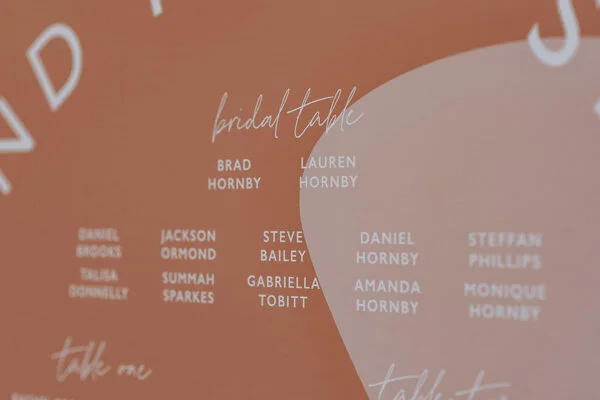 bridal table
BRAD LAUREN
HORNBY HORNBY
DANIEL JACKSON STEVE DANIEL STEFFAN
BROOKS ORMOND BAILEY HORNBY PHILLIPS
TALISA SUMMAH GABRIELLA AMANDA MONIQUE
DONNELLY SPARKES TOBITT HORNBY HORNBY
table one